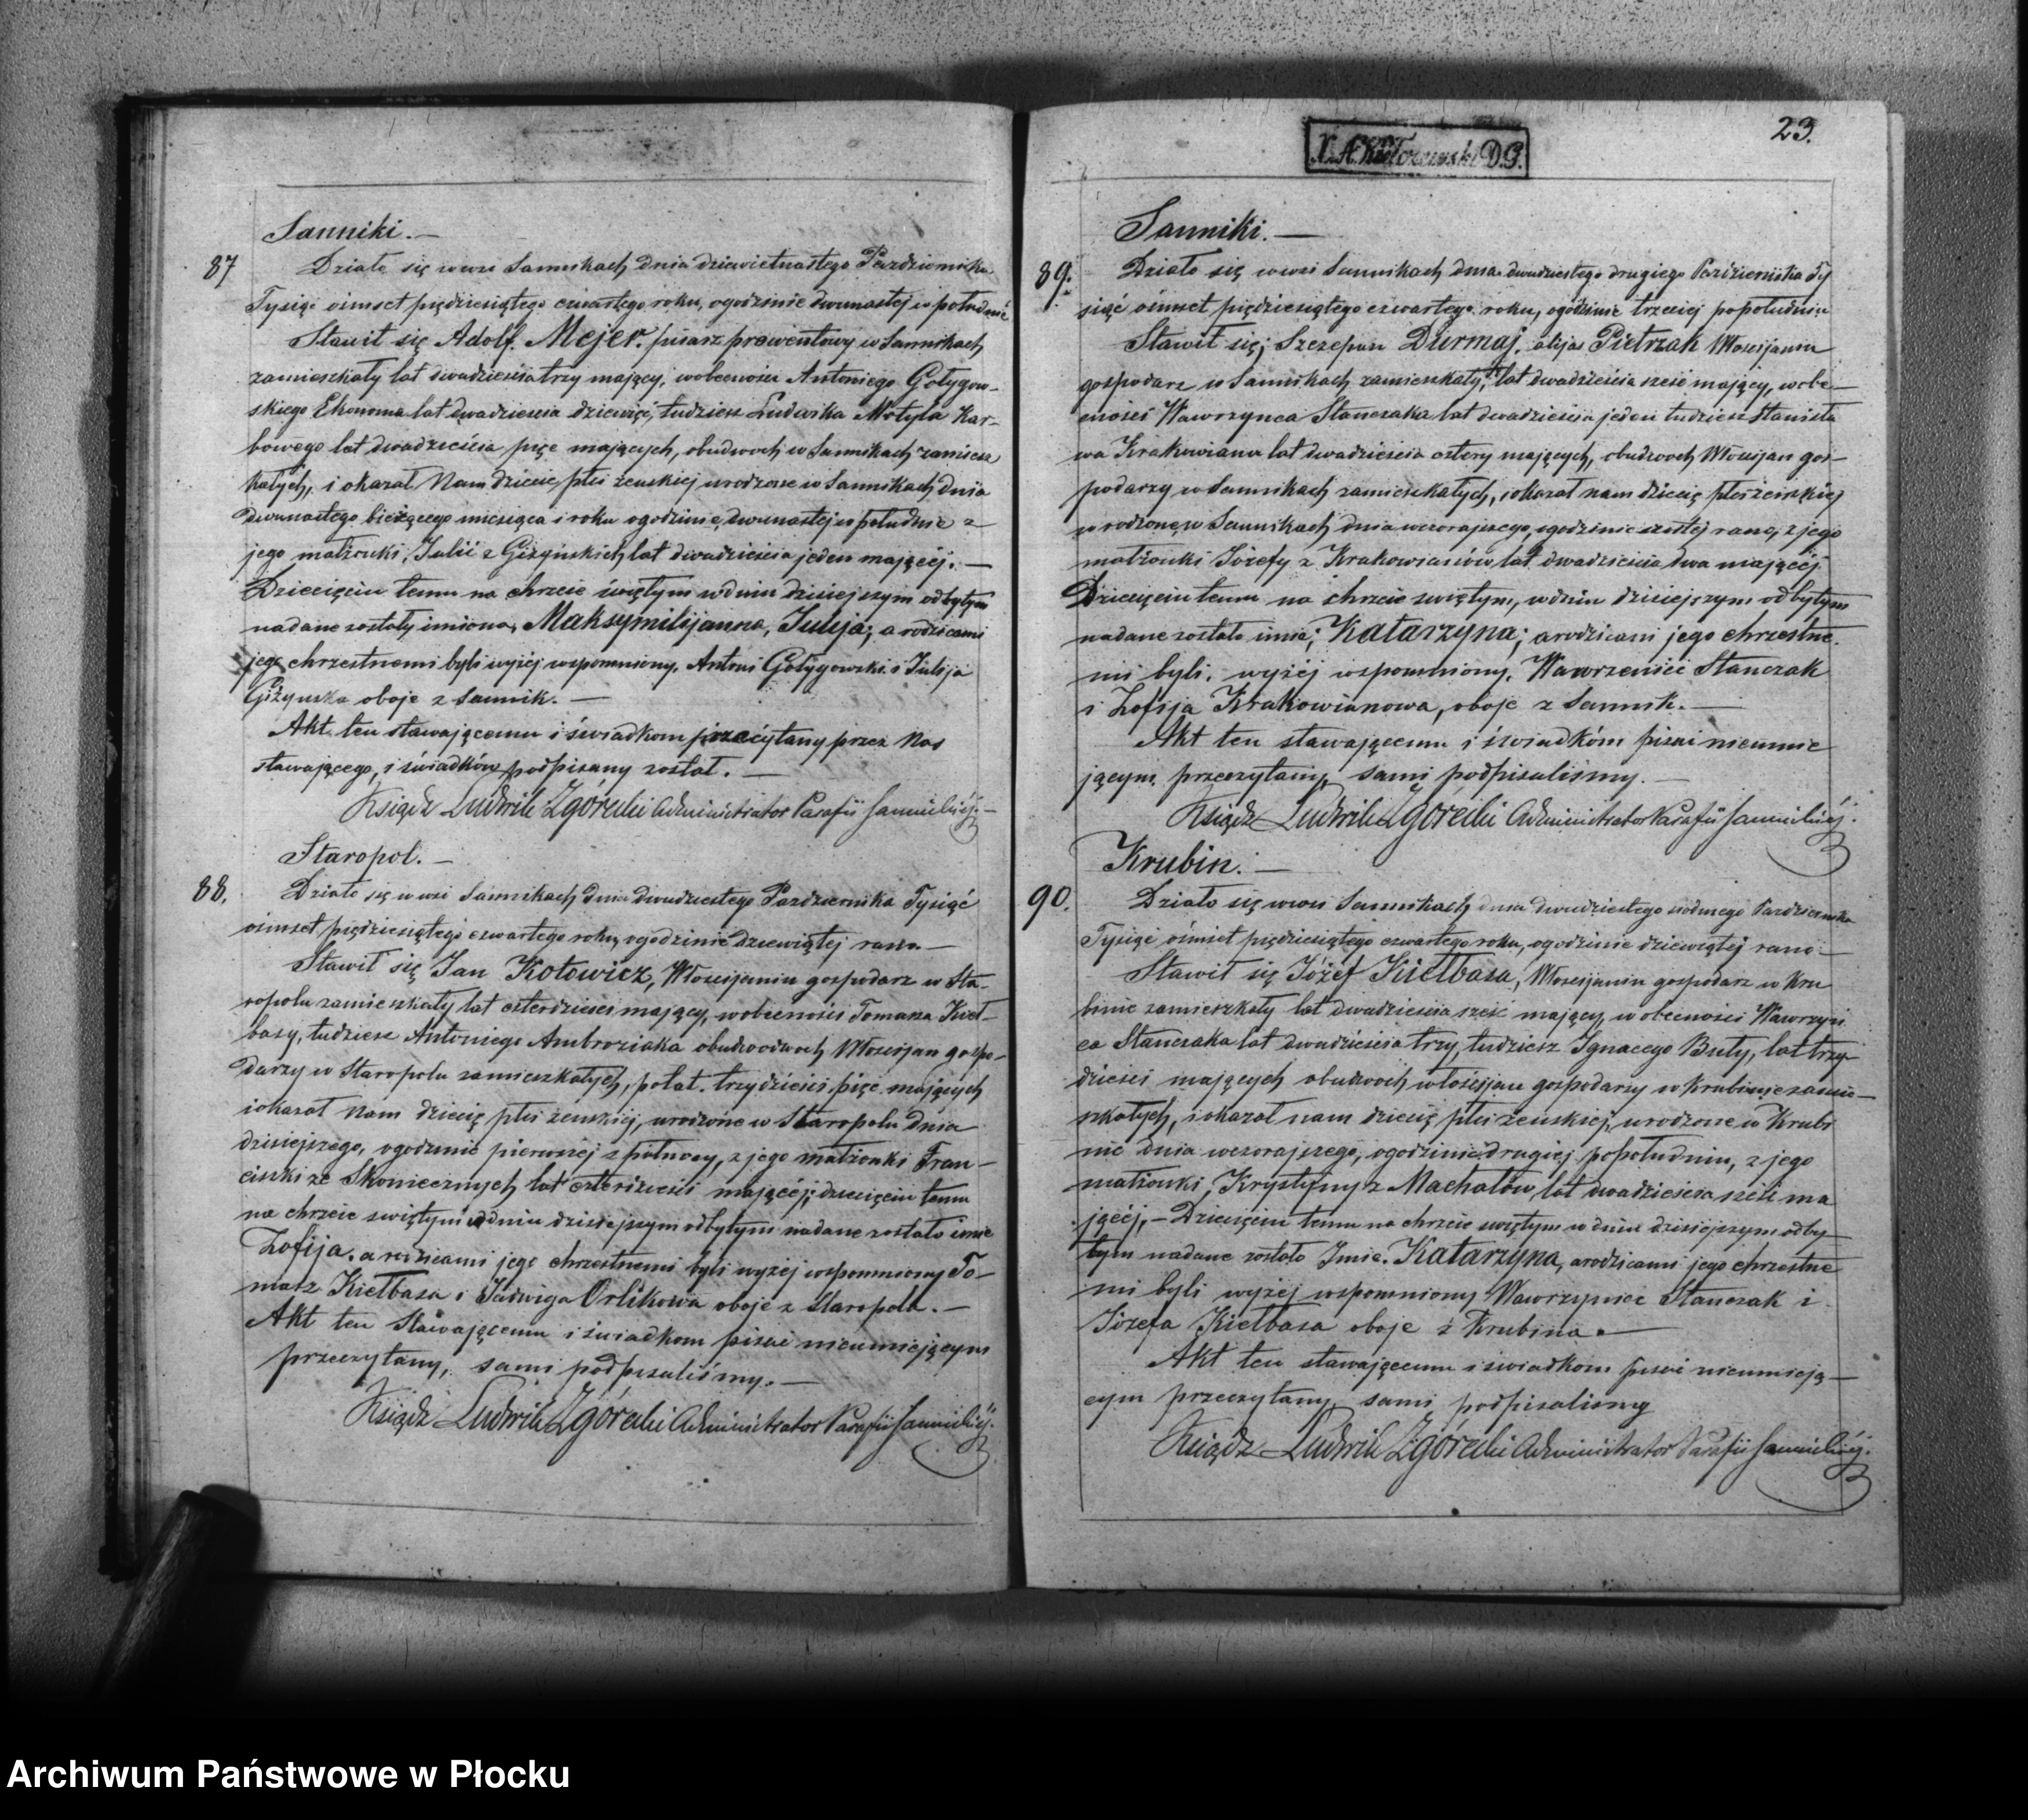 Sanniki. —
87 Działo się w wsi Sannikach dnia dziewietnastego Pazdziernika
Tysiąc ośmset pięćdziesiątego czwartego roku, ogodzinie dwunastej w południe
Stawił się Adolf Mejer, pisarz prowentowy w Sannikach
zamieszkały lat dwadzieścia trzy mający, wobecności Antoniego Gołygow-
skiego Ekonoma lat dwadzieścia dziewięć, tudzież Ludwika Motyla Kar-
bowego lat dwadzieścia pięć mających, obudwoch w Sannikach zamiesz
kałych, i okazał Nam dziecie płci żenskiej urodzone w Sannikach dnia
dwunastego bieżącego miesiąca i roku ogodzinie dwunastej w południe z
jego małżonki, Julii z Giżyńskich lat dwadzieścia jeden mającéj. —
Dziecięciu temu na chrzcie świętym wdniu dzisiejszym odbytym
nadane zostały imiona, Maksymilijanna, Julija; a rodzicami
jego chrzestnemi byli wyżéj wspomniony, Antoni Gołygowski i Julija
Giżynska oboje z Sannik. —
Akt ten stawającemu i świadkom przeczytany przez Nas
stawającego, i świadków podpisany został. —
Ksiądz Ludwik Zgórecki Administrator Parafii Sannickiéj. —
Staropol. —
88. Działo się w wsi Sannikach dnia dwudziestego Pazdziernika Tysiąc
ośmset pięćdziesiątego czwartego roku, ogodzinie dziewiątej rano. —
Stawił się Jan Kotowicz, Włoscijanin gospodarz w Sta-
ropolu zamieszkały lat czterdzieści mający, wobecności Tomasza Kieł-
basy, tudziesz Antoniego Ambroziaka obudwoch Włoscijan gospo-
darzy w Staropolu zamieszkałych, po lat trzydzieści pięc mających
i okazał Nam dziecię płci żenskiéj, urodzone w Staropolu dnia
dzisiejszego, ogodzinie pierwszéj z północy, z jego małżonki Fran-
ciszki ze Skoniecznych lat czterdzieści mającéj; dziecięciu temu
na chrzcie swiętym wdniu dzisiejszym odbytym nadane zostało imie
Zofija, a rodzicami jego chrzestnemi byli wyzej wspomniony To-
masz Kiełbasa i Jadwiga Orlikowa oboje z Staropola. —
Akt ten Stawającemu i świadkom pisać nieumiejącym
przeczytany, sami podpisaliśmy. —
Ksiądz Ludwik Zgórecki Administrator Parafii Sannickiéj.
23.
Sanniki. —
89. Działo się w wsi Sannikach dnia dwudziestego drugiego Pazdziernika Ty
siąc ośmset pięćdziesiątego czwartego roku, ogodzinie trzeciej popołudniu
Stawił się; Szczepan Durmaj, alijas Pietrzak Włoscijanin
gospodarz w Sannikach zamieszkały, lat dwadzieścia sześć mający, wobe-
cności Wawrzynca Stanczaka lat dwadzieścia jeden tudziesz Stanisła
wa Krakowiana lat dwadzieścia cztery mających, obudwoch Włoscijan gos-
podarzy w Sannikach zamieszkałych, i okazał nam dziecię płci żenskiéj
urodzone w Sannikach dnia wczorajszego, ogodzinie szóstej rano, z jego
małżonki Józefy z Krakowianów, lat dwadzieścia dwa mającéj
Dziecięciu temu na chrzcie swiętym, wdniu dzisiejszym odbytym
nadane zostało imie; Katarzyna; a rodzicami jego chrzestne-
mi byli, wyżéj wspomniony, Wawrzeniec Stanczak
i Zofija Krakowianowa, oboje z Sannik. —
Akt ten stawającemu i świadkóm pisać nieumie
jącym, przeczytany, sami podpisaliśmy. —
Ksiądz Ludwik Zgórecki Administrator Parafii Sannickiéj.
Krubin. —
90. Działo się w wsi Sannikach dnia dwudziestego siodmego Pazdziernika
Tysiąc ośmset pięćdziesiątego czwartego roku, ogodzinie dziewiątéj rano —
Stawił się Józef Kiełbasa, Włoscijanin gospodarz w Kru
binie zamieszkały lat dwadzieścia sześć mający, w obecności Wawrzyn
ca Stanczaka lat dwadzieścia trzy, tudziesz Ignacego Buty, lat trzy-
dzieści mających obudwoch włościjan gospodarzy w Krubinie zamie-
szkałych, i okazał nam dziecię płci żenskiej, urodzone w Krubi
nie dnia wczorajszego, ogodzinie drugiej popołudniu, z jego
małżonki, Krystyny z Machałów, lat dwadzieścia sześć ma
jącéj, — Dziecięciu temu na chrzcie swiętym w dniu dzisiejszym odby-
tym nadane zostało Imie. Katarzyna, a rodzicami jego chrzestne
mi byli wyżéj wspomniony Wawrzyniec Stanczak i
Józefa Kiełbasa oboje z Krubina. —
Akt ten stawającemu i świadkom pisać nieumieją-
cym przeczytany, sami podpisalismy
Ksiądz Ludwik Zgórecki Administrator Parafii Sannickiéj.
Archiwum Państwowe w Płocku